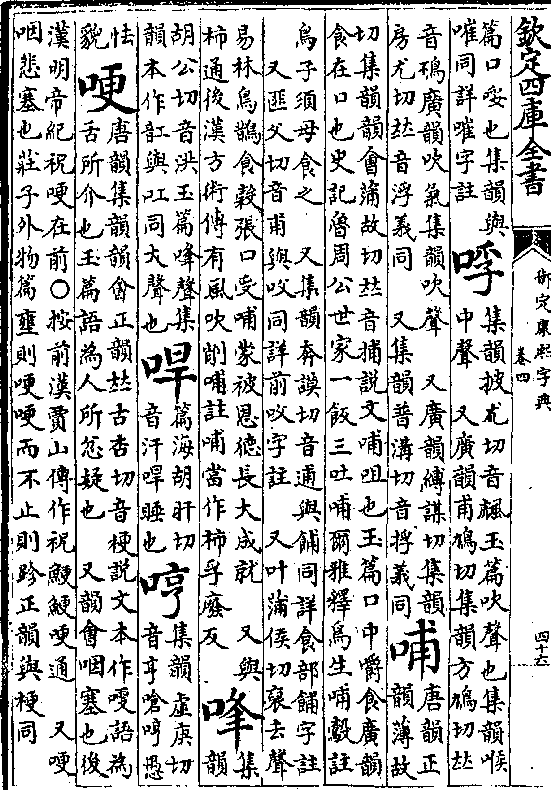 欽定四庫全書
御定康熙字典
卷四
四十六
篇口唲也集韻與
嗺同詳嗺字註
哹
集韻披尤切音飊玉篇吹聲也集韻喉
中聲 又廣韻甫鳩切集韻方鳩切𠀤
音䃼廣韻吹氣集韻吹聲 又廣韻縛謀切集韻
房尤切𠀤音浮義同 又集韻普溝切音捊義同
哺
唐韻正
韻薄故
切集韻韻會蒲故切𠀤音捕說文哺咀也玉篇口中嚼食廣韻
食在口也史記魯周公世家一飯三吐哺爾雅釋鳥生哺鷇註
鳥子須母食之 又集韻奔謨切音逋與餔同詳食部餔字註
又匪父切音甫與㕮同詳前㕮字註 又叶蒲侯切裒去聲
易林烏鵲食穀張口受哺蒙被恩德長大成就 又與
柿通後漢方術傳有風吹削哺註哺當作柿孚廢反
㖓
集
韻
胡公切音洪玉篇㖓聲集
韻本作缸與吅同大聲也
哻
篇海胡肝切
音汗哻睡也
哼
集韻虛庚切
音亨嗆哼愚
怯
貌
哽
唐韻集韻韻會正韻𠀤古杏切音梗說文本作㖫語為
舌所介也玉篇語為人所忿疑也 又韻會咽塞也後
漢明帝紀祝哽在前○按前漢賈山傳作祝鯁鯁哽通 又哽
咽悲塞也莊子外物篇壅則哽哽而不止則跈正韻與梗同